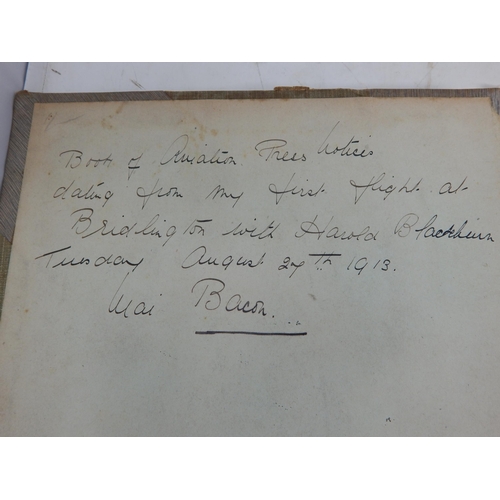 Book of Aviation Press Notices
dating from my first flight at
Bridlington with Harold Blackburn
Tuesday August 27th 1913.
Mai Bacon.